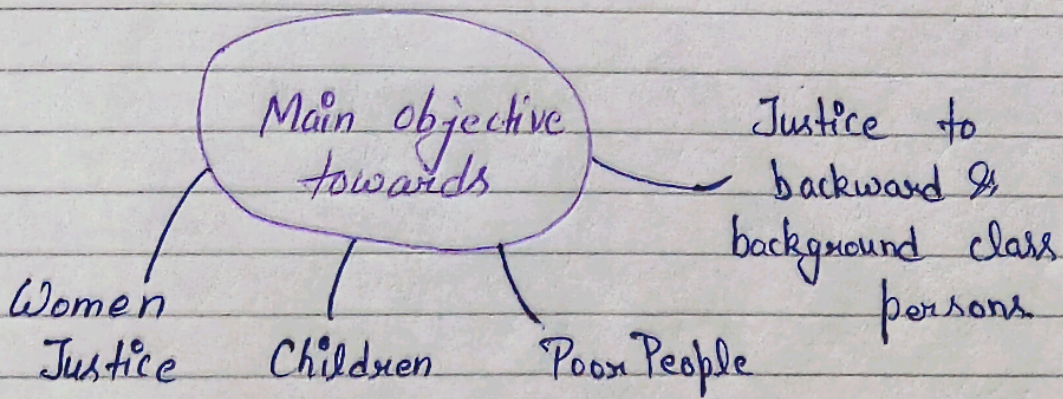 Main objective
towards
Justice to
backward &
background class
persons
Women
Justice
Children
Poor People